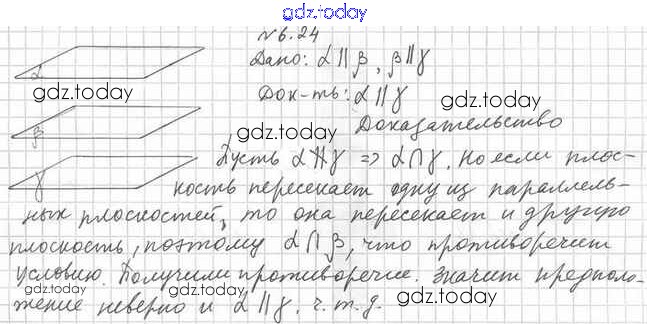 gdz.today
№6.24
Дано: α ∥ β, β ∥ γ
α
gdz.today
Док-ть: α ∥ γ
gdz.today
β
Доказательство
Пусть α ∦ γ => α ∩ γ. Но если плос-
γ
кость пересекает одну из параллель-
ных плоскостей, то она пересекает и другую
плоскость, поэтому α ∩ β, что противоречит
условию. Получили противоречие. Значит предполо-
gdz.today
gdz.today
жение неверно и α ∥ γ. ч.т.д.
gdz.today